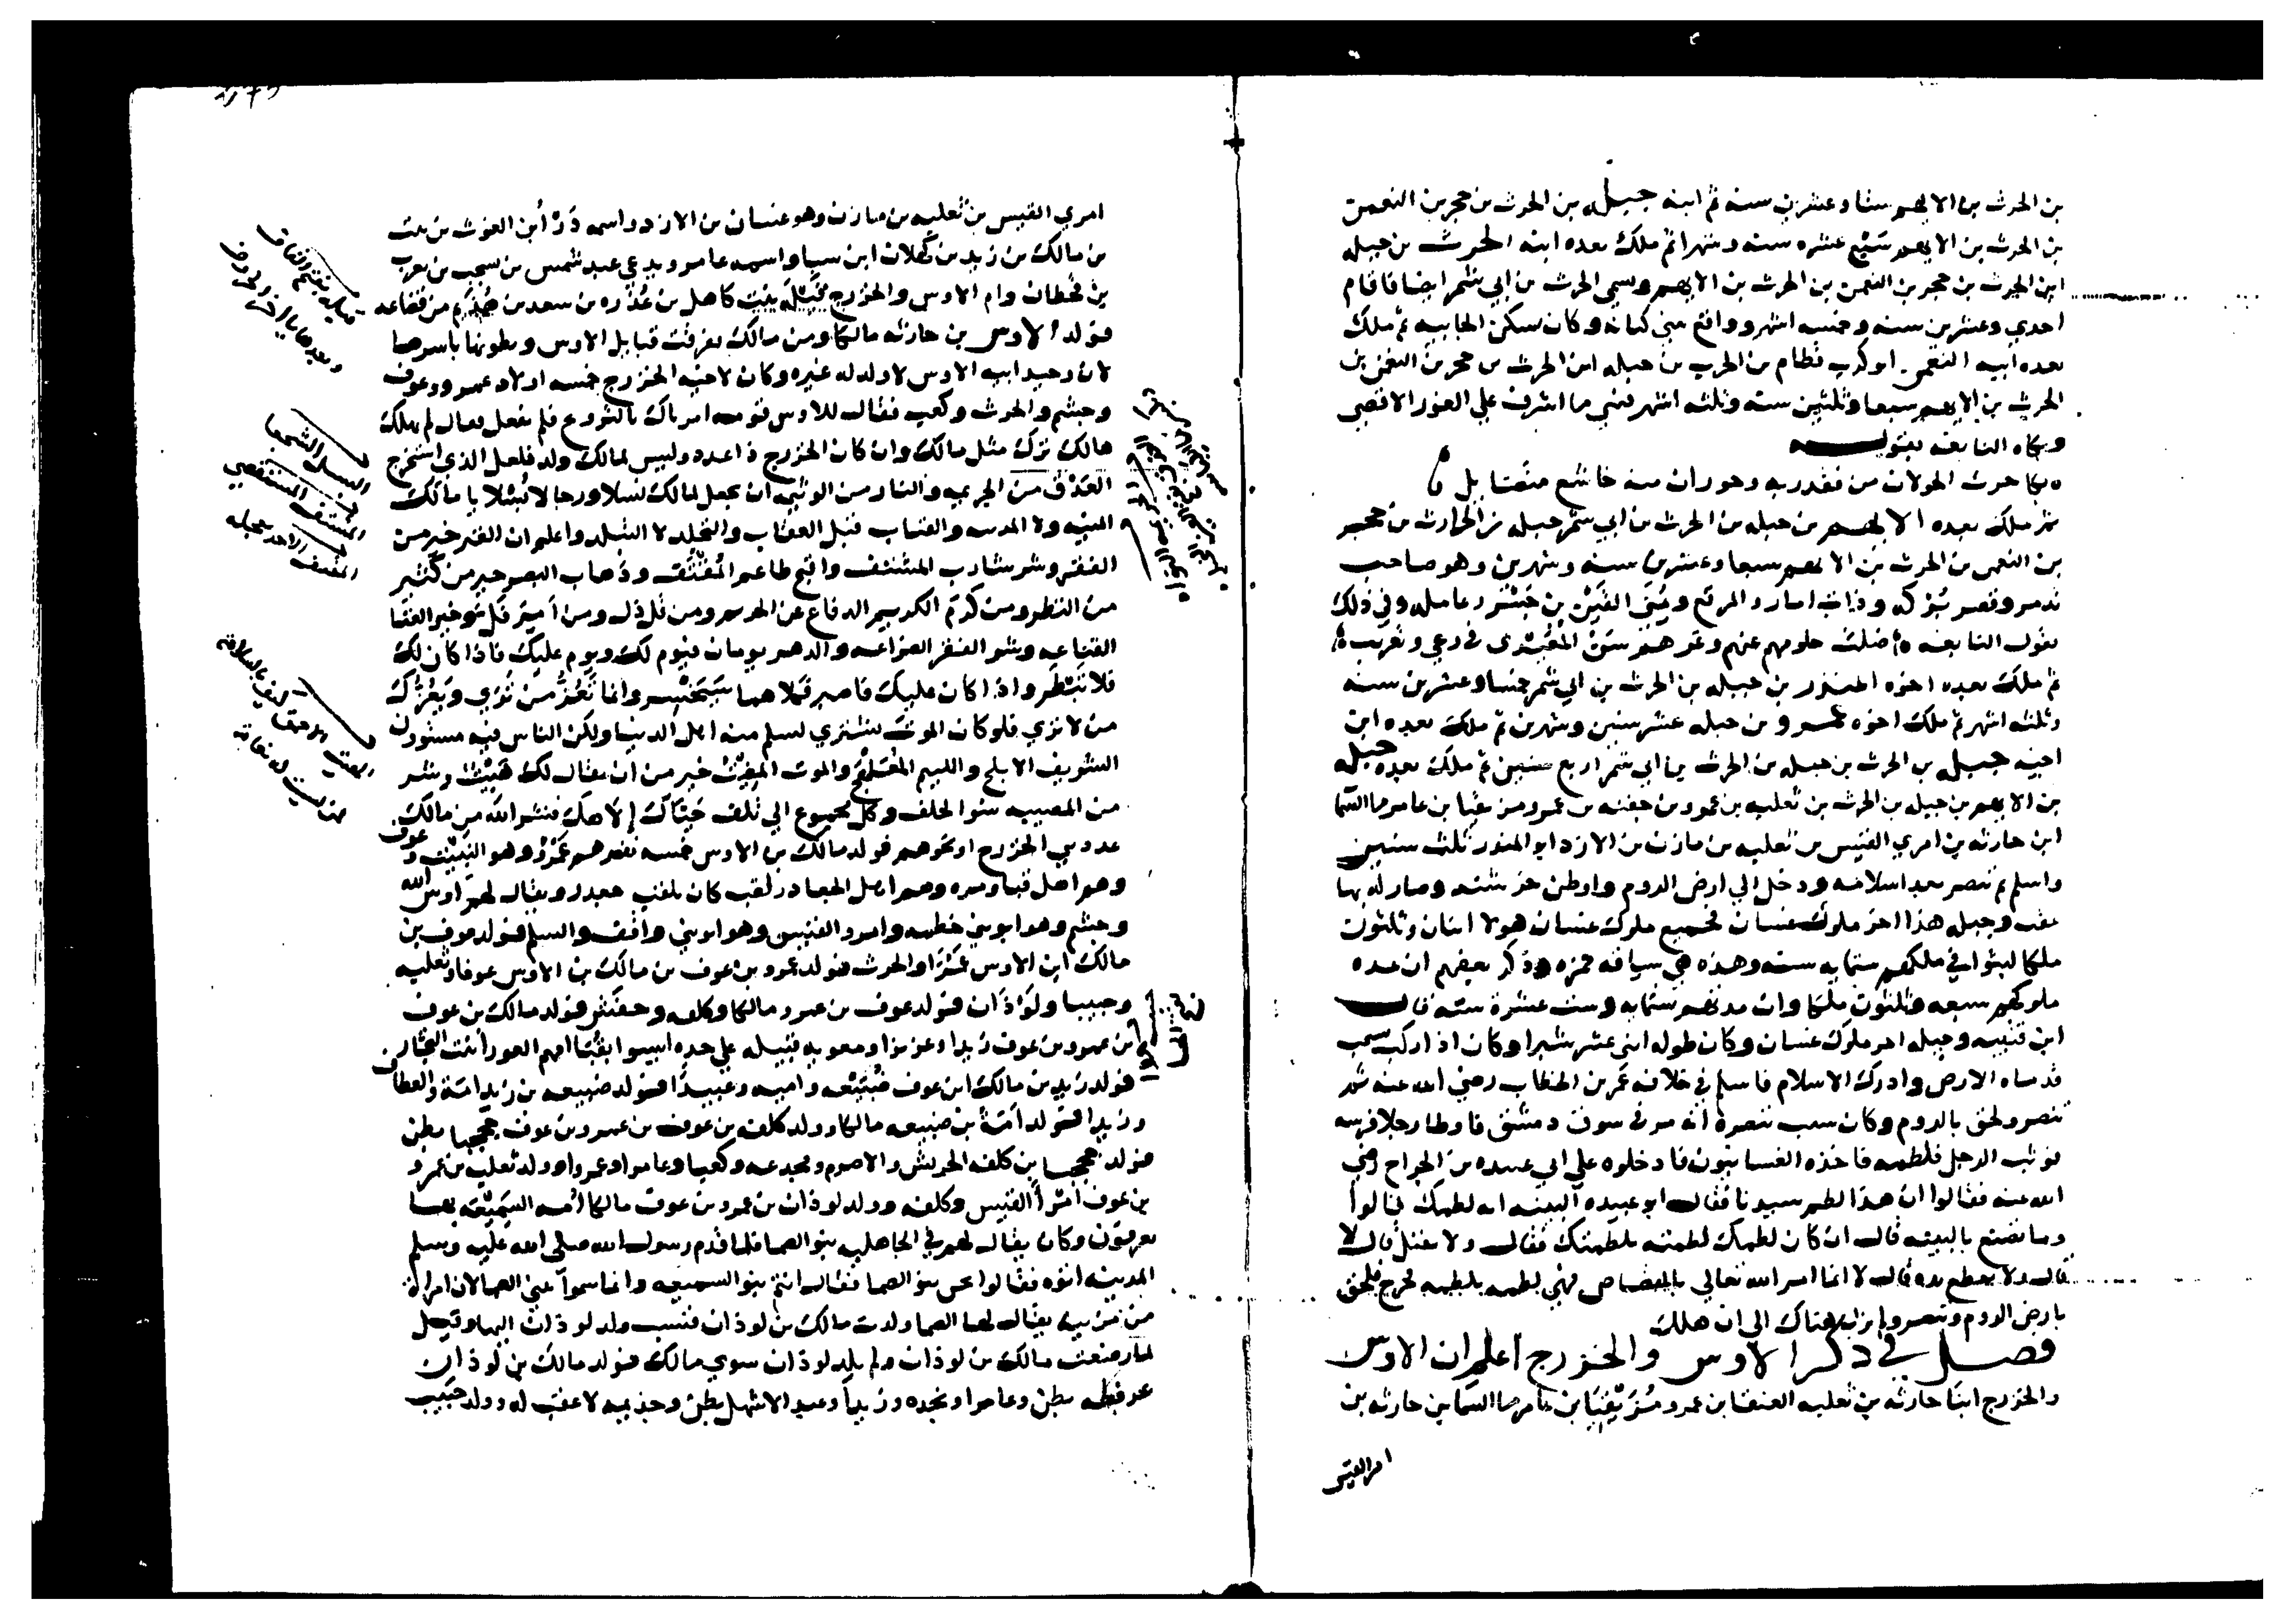 بن الحرث بن الايهم ستا وعشرين سنه ثم ابنه جبيله بن الحرث بن حجر بن النعمن
بن الحرث بن الايهم سَبْع عشره سنه وشهرا ثم ملك بعده ابنه الحرث بن جبيله
ابن الحرث بن حجر بن النعمن بن الحرث بن الايهم وسمي الحرث بن ابي شمر ايضا فاقام
احدي وعشرين سنه وخمسه اشهر وواقع بني كنانه وكان يسكن الجابيه ثم ملك
بعده ابنه النعمن ابو كرب قطام بن الحرث بن جبله ابن الحرث بن حجر بن النعمن بن
الحرث بن الايهم سبعا وثلثين سنه وثلثه اشهر فبني ما اشرف علي الغور الاقصي
وبكاه النابغه بقولـــه
بكا حرث الجولان من فقد ربه وحوران منه خاشع متضايل
ثم ملك بعده الايهم بن جبله بن الحرث بن ابي شمر جبله بن الحارث بن حجر
بن النعمن بن الحرث بن الايهم سبعا وعشرين سنه وشهرين وهو صاحب
تدمر وقصر بركه وذات انمار والمرتع ومُنَي القَيْن بن جَسْر وعامله وفي ذلك
يقول النابغه ضلت حلومهم عنهم وغرهم سَنُّ المُعَيْدى في رعي وتعريب
ثم ملك بعده اخوه المنذر بن جبله بن الحرث بن ابي شمر خمسا وعشرين سنه
وثلثه اشهر ثم ملك اخوه عمرو بن جبله عشر سنين وشهرين ثم ملك بعده ابن
اخيه جبيله بن الحرث بن جبله بن الحرث بن ابي شمر اربع سنين ثم ملك بعده جبله
بن الايهم بن جبله بن الحرث بن ثعلبه بن عمرو بن جفنه بن عمرو مزيقيا بن عامر ما السما
ابن حارثه بن امري القيس بن ثعلبه بن مازن بن الازد ابو المنذر ثلث سنين
واسلم ثم تنصر بعد اسلامه ودخل الي ارض الروم واوطن خرشنه وصار له بها
عقب وجبله هذا اخر ملوك غسان فجميع ملوك غسان هولا اثنان وثلثون
ملكا لبثوا في ملكهم ستمايه سنه وهذه هي سياقه حمزه وذكر بعضهم ان عده
ملوكهم سبعه وثلثون ملكا وان مدتهم ستمايه وست عشرة سنه قالــــ
ابن قتيبه وجبله اخر ملوك غسان وكان طوله اثنى عشر شبرا وكان اذا ركب سحب
قدماه الارض وادرك الاسلام فاسلم في خلافه عمر بن الخطاب رضي الله عنه ثم
تنصر ولحق بالروم وكان سبب تنصره انه مر في سوق دمشق فاوطا رجلا فرسه
فوثب الرجل فلطمه فاخذه الغسانيون فادخلوه علي ابي عبيده بن الجراح رضي
الله عنه فقالوا ان هذا لطم سيدنا فقال ابو عبيده البينه انه لطمك قالوا
وما تصنع بالبينه قال ان كان لطمك لطمته بلطمتك فقال ولا يقتل قال لا
قال ولا يقطع يده قال لا انما امر الله تعالي بالقصاص فهي لطمه بلطمه فخرج فلحق
بارض الروم وتنصر ولم يزل هناك الى ان هلك
فصـــل في ذكر الاوس والخزرج اعلم ان الاوس
والخزرج ابنا حارثه بن ثعلبه العنقا بن عمرو مُزَيْقِيَا بن عامر ما السما بن حارثه بن
امر القيس
امري القيس بن ثعلبه بن مازن وهو غسان بن الازد واسمه دَرْأ بن الغوث بن نبت
بن مالك بن زيد بن كهلان ابن سبا واسمه عامر ويدعي عبد شمس بن يشجب بن يعرب
بن قحطان وام الاوس والخزرج قَيْلَه بنت كاهل بن عُذْره بن سعد بن هُذَيْم من قضاعه
فولد الاوس بن حارثه مالكا ومن مالك تفرقت قبايل الاوس وبطونها باسرها
لان وحيد ابيه الاوس لا ولد له غيره وكان لاخيه الخزرج خمسه اولاد عمرو وعوف
وجشم والحرث وكعب فقال للاوس قومه امرناك بالتزوج فلم تفعل فقال لم يهلك
هالك ترك مثل مالك وان كان الخزرج ذا عدد وليس لمالك ولد فلعل الذي استخرج
العَذْق من الجريمه والنار من الوثيمه ان يجعل لمالك نسلا ورجالا بُسْلا يا مالك
المنيه ولا الدنيه والعتاب قبل العقاب والتجلد لا التبلد واعلم ان القبر خير من
الفقر وشر شارب المشتف واقبح طاعم المُقْتَفّ وذهاب البصر خير من كثير
من النظر ومن كَرَم الكريم الدفاع عن الحريم ومن قل ذل ومن اَمِرَ فَلَّ وخير الغنا
القناعه وشر الفقر الضراعه والدهر يومان فيوم لك ويوم عليك فاذا كان لك
فلا تَبْطَر واذا كان عليك فاصبر فكلاهما سَيَنْحَسِر وانما تَعُزُّ من تُرَي وَيَعُزُّك
من لا تري فلو كان الموت يشتري لسلم منه اهل الدنيا ولكن الناس فيه مستوون
الشريف الابلج واللييم المُعَلْهَج والموت المُفِيْت خير من ان يقال لك هَبِيْت وشر
من المصيبه سوّ الخلف وكل مجموع الي تلف حَيَّاك اِلَاهك فنشر الله من مالك
عدد بني الخزرج او نحوهم فولد مالك بن الاوس خمسه نفر هم عَمْرو وهو النَبِيْت وعوف
وهو اهل قبا ... وهم اهل الجعادر لقب كان يلقب جعدر ويقال لهم اوس الله
وجشم وهو ابو بني خطمه وامرو القيس وهو ابو بني واقف والسلم فولد عوف بن
مالك ابن الاوس عَمْرًا والحرث فولد عمرو بن عوف بن مالك بن الاوس عوفا وثعلبه
وحبيبا ولَوْذَان فولد عوف بن عمرو مالكا وكلفه وحَنَش فولد مالك بن عوف
بن عمرو بن عوف زيدا وعزيزا ومعويه قبيله علي حده ليسوا بقُبَا امهم العورا بنت النجار
فولد زيد بن مالك ابن عوف ضُبَيْعه واميه وعبيدًا فولد ضبيعه بن زيد اَمَة والعطاف
وزيدا فولد اَمَة بن ضبيعه مالكا وولد كلفه بن عوف بن عمرو بن عوف جحجبا بطن
فولد جحجبا بن كلفه الحريش والاصرم ومجدعه وكعبا وعامرا وعمروا وولد ثعلبه بن عمرو
بن عوف امْرأَ القيس وكلفه وولد لوذان بن عمرو بن عوف مالكا اُمه السَمِيْعَه بها
يعرفون وكان يقال لهم في الجاهليه بنو الصما فلما قدم رسول الله صلى الله عليه وسلم
المدينه اتوه فقالوا نحن بنو الصما فقال انتم بنو السميعه وانما سموا بني الصما لان امراة
من مزينه يقال لها الصما ولدت مالك بن لوذان فنسب ولد لوذان اليها وقيل
لما رضعت مالك بن لوذان ولم يلد لوذان سوي مالك فولد مالك بن لوذان
عرفطه بطن وعامرا ونجده وزيداً وعبد الاشهل بطن وحذيمه لا عقب له وولد حبيب
البسل الشجعا
المشتف المستقصي